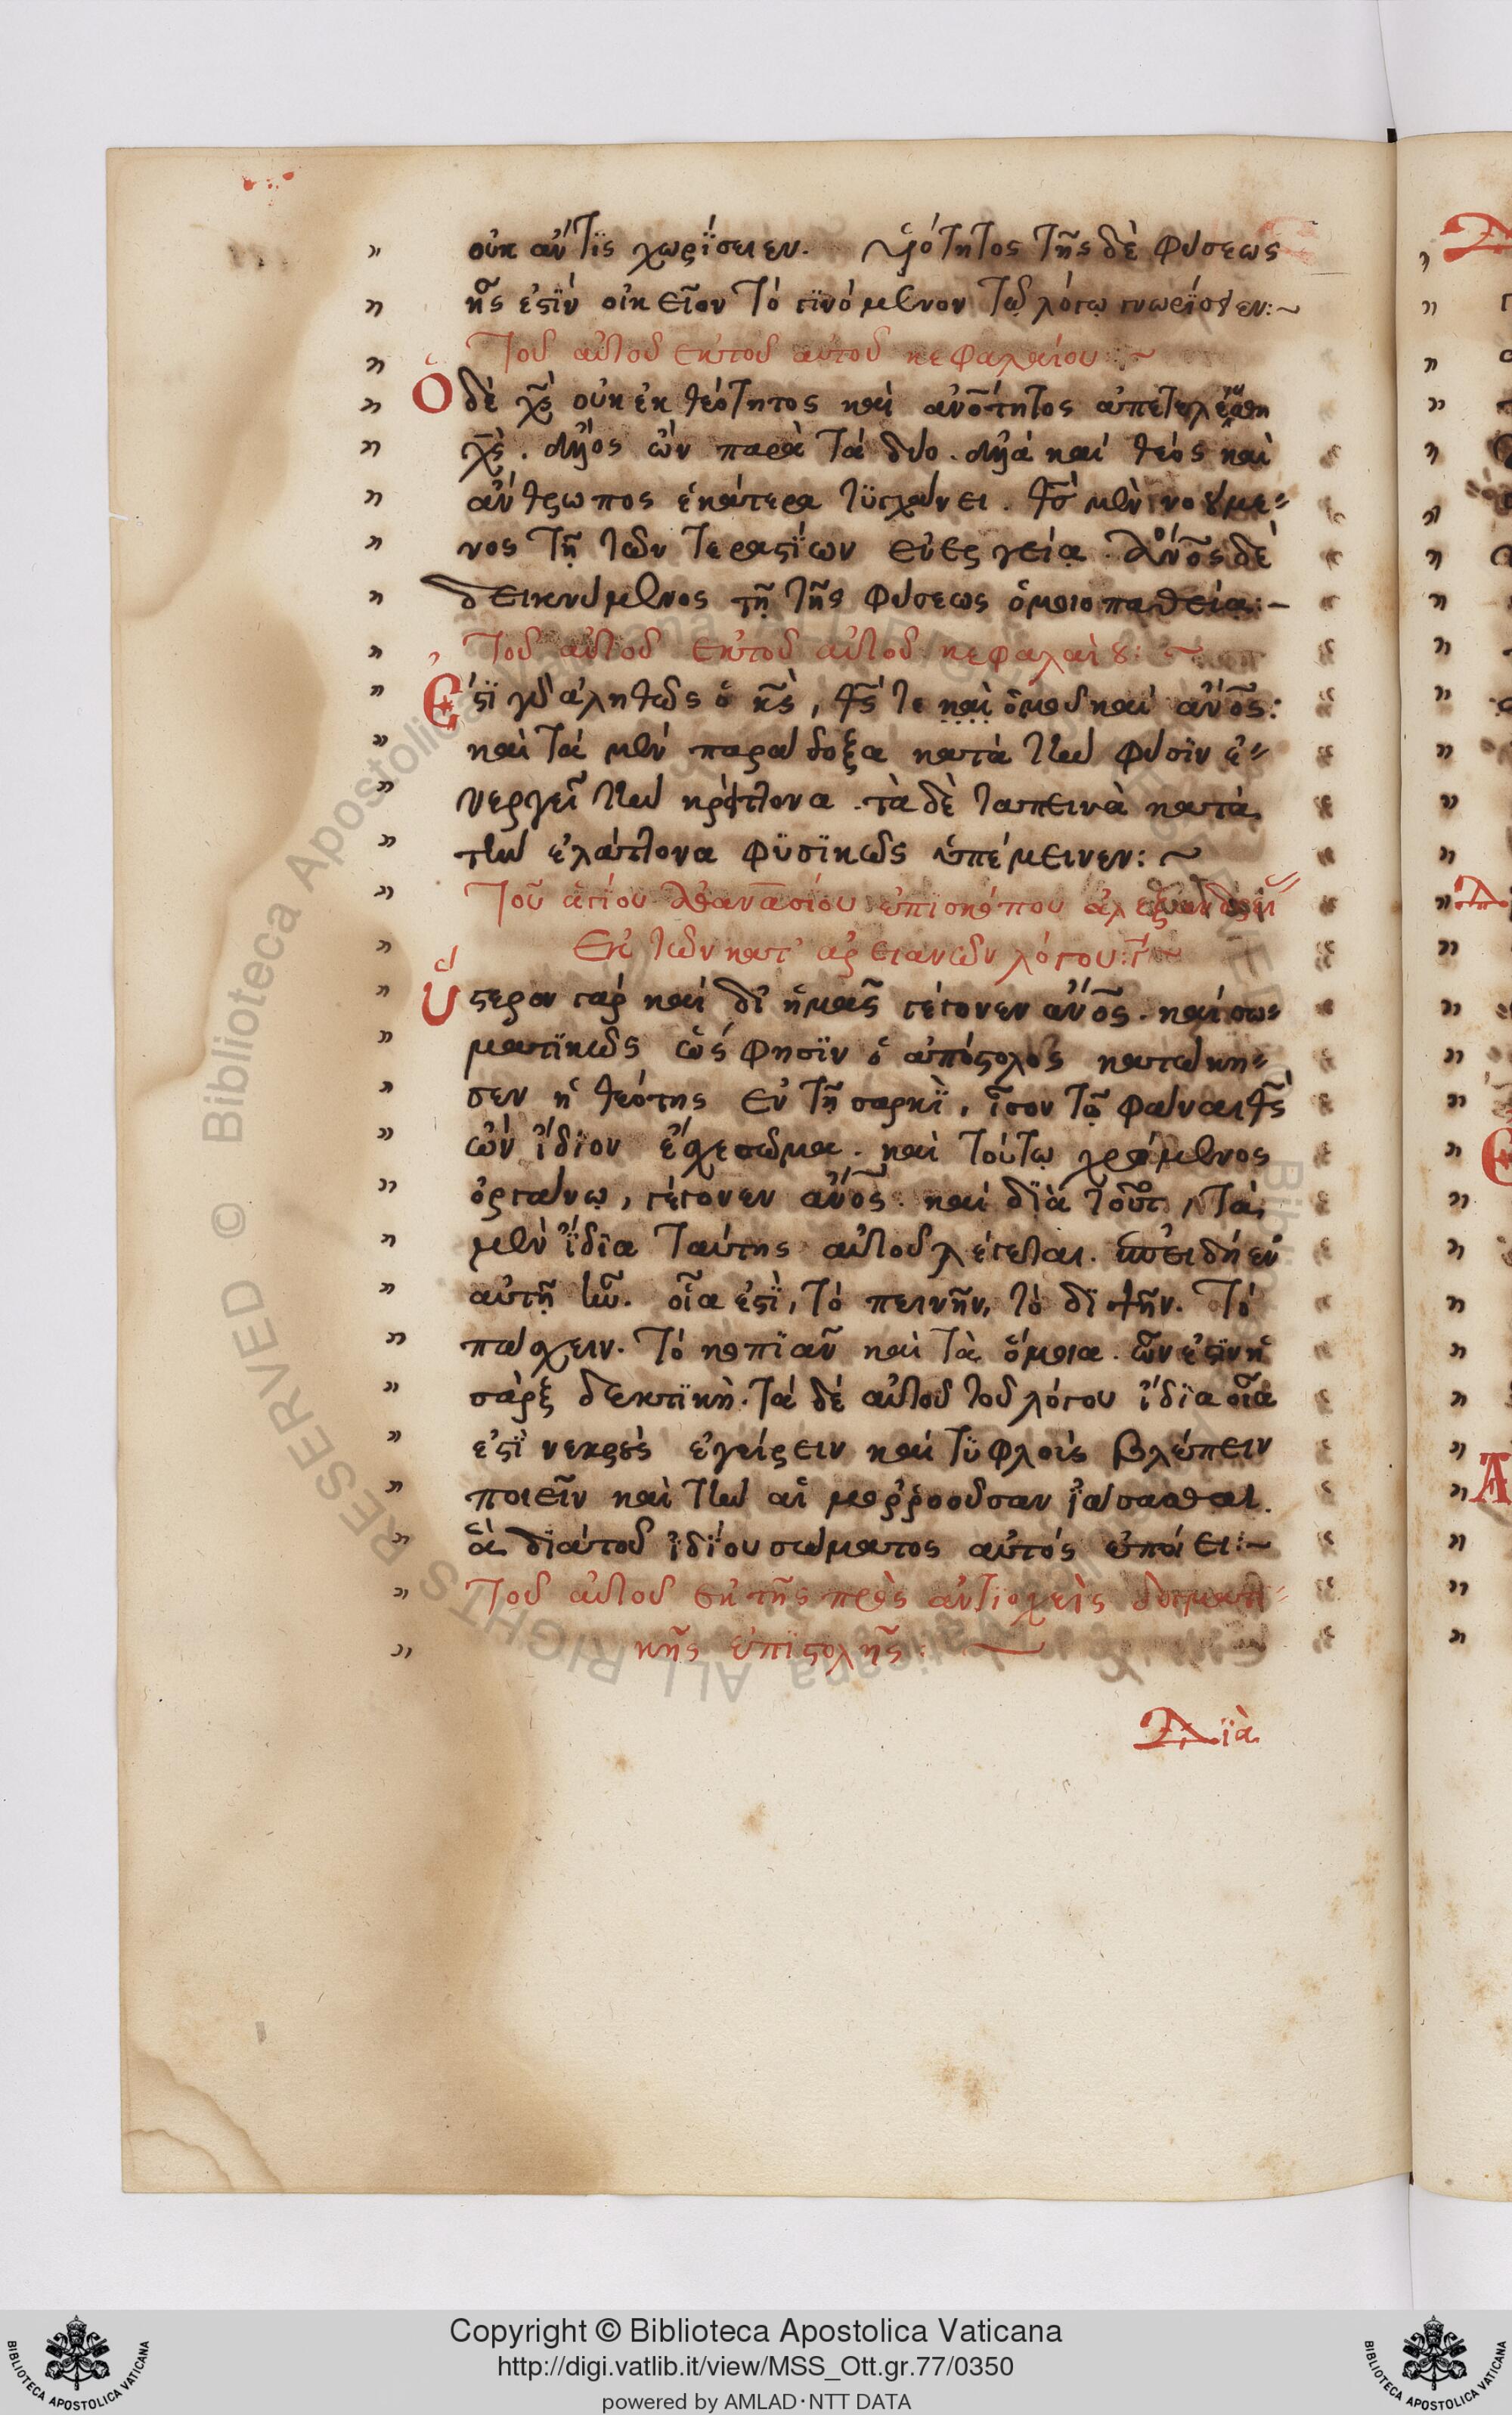 οὐκ ἄν τϊς χωρΐσειεν. θεότητος τῆς δὲ φύσεως
ἧς ἐστϊν οἰκεῖον τὸ γϊνόμενον τῷ λόγῳ γνωρίσθεν:~
Τοῦ αὐτοῦ ἐκ τοῦ αὐτοῦ κεφαλαίου:~
Ὁ δὲ χς οὐκ ἐκ θεότητος καὶ ἀνότητος ἀπετελέσθη
χς. ἄλλος ὢν παρὰ τὰ δύο. ἀλλὰ καὶ θεὸς καὶ
ἄνθρωπος ἑκάτερα τϋγχάνει. θς μὲν νοούμε-
νος τῇ τῶν τεραστΐων εὐεργείᾳ. ἄνος δὲ
δεικνύμενος τῇ τῆς φύσεως ὁμοιοπαθείᾳ:~
Τοῦ αὐτοῦ ἐκ τοῦ αὐτοῦ κεφαλαίου:~
Ἔστϊ γὰρ ἀληθῶς ὁ κς, θς τε καὶ ὁμοῦ καὶ ἄνος:
καὶ τὰ μὲν παράδοξα κατὰ τὴν φύσϊν ἐ-
νεργεῖ τὴν κρείττονα. τὰ δὲ ταπεινὰ κατὰ
τὴν ἐλάττονα φϋσϊκῶς ὑπέμεινεν:~
Τοῦ ἁγίου Ἀθανασίου ἐπϊσκόπου ἀλεξανδρεί
Ἐκ τῶν κατ' ἀρειανῶν λόγου:γ~
Ὕστερον γὰρ καὶ δι' ἡμᾶς γέγονεν ἄνος. καὶ σω-
ματϊκῶς ὥς φησϊν ὁ ἀπόστολος κατώκη-
σεν ἡ θεότης ἐν τῇ σαρκΐ, ἶσον τῷ φάναι θς
ὢν ἴδϊον ἔσχε σῶμα. καὶ τούτῳ χρώμενος
ὀργάνῳ, γέγονεν ἄνος. καὶ δϊὰ τοῦτο, τὰ
μὲν ἴδϊα ταύτης αὐτοῦ λέγεται. ἐπειδὴ ἐν
αὐτῇ ἦν. οἷα ἐστΐ, τὸ πεινῆν, τὸ δϊψῆν. τὸ
πάσχειν. τὸ κοπϊᾶν καὶ τὰ ὅμοια. ὧν ἐστϊν ἡ
σὰρξ δεκτϊκή. τὰ δὲ αὐτοῦ τοῦ λόγου ἴδϊα οἷα
ἐστΐ νεκροὺς ἐγείρειν καὶ τϋφλοῖς βλέπειν
ποιεῖν καὶ τὴν αἱμορροοῦσαν ἰάσασθαι.
ἃ δϊ' αὐτοῦ ἰδΐου σώματος αὐτὸς ἐποίει:~
Τοῦ αὐτοῦ ἐκ τῆς πρὸς ἀντϊοχεῖς δογματϊ-
κῆς ἐπϊστολῆς:
Δϊὰ
Copyright © Biblioteca Apostolica Vaticana
http://digi.vatlib.it/view/MSS_Ott.gr.77/0350
powered by AMLAD·NTT DATA